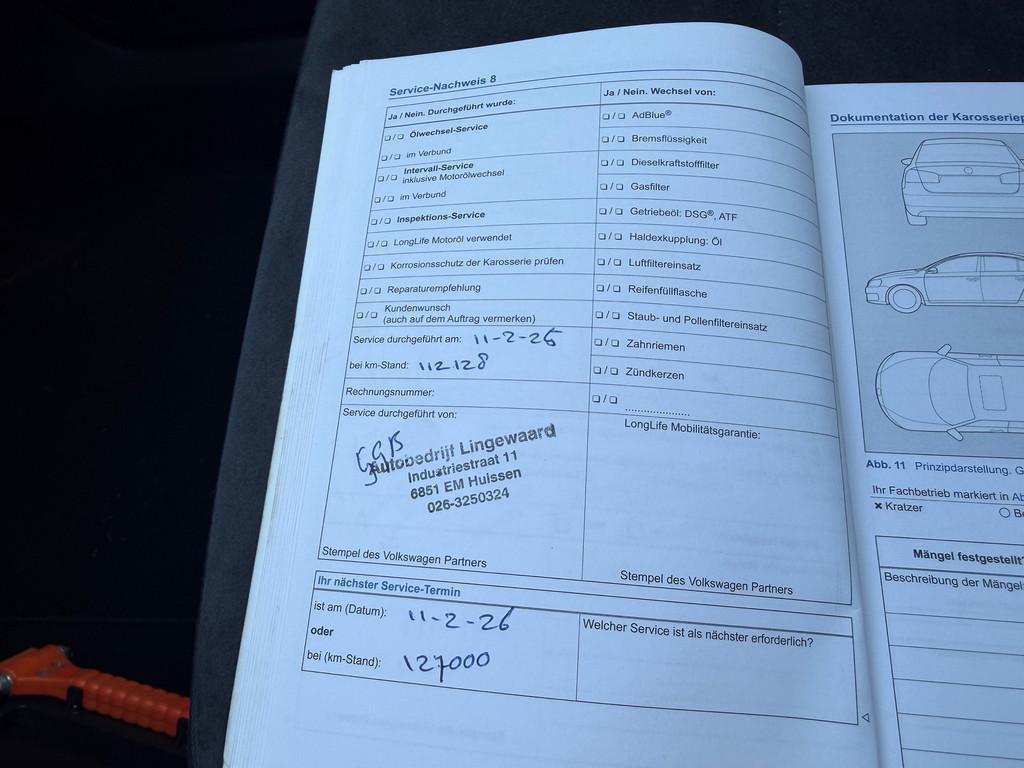 Service-Nachweis 8
Ja / Nein. Durchgeführt wurde:
❏ / ❏ Ölwechsel-Service
❏ / ❏ im Verbund
❏ / ❏ Intervall-Service
inklusive Motorölwechsel
❏ / ❏ im Verbund
❏ / ❏ Inspektions-Service
❏ / ❏ LongLife Motoröl verwendet
❏ / ❏ Korrosionsschutz der Karosserie prüfen
❏ / ❏ Reparaturempfehlung
❏ / ❏ Kundenwunsch
(auch auf dem Auftrag vermerken)
Service durchgeführt am: 11-2-25
bei km-Stand: 112128
Rechnungsnummer:
Service durchgeführt von:
Autobedrijf Lingewaard
Industriestraat 11
6851 EM Huissen
026-3250324
Stempel des Volkswagen Partners
Ja / Nein. Wechsel von:
❏ / ❏ AdBlue®
❏ / ❏ Bremsflüssigkeit
❏ / ❏ Dieselkraftstofffilter
❏ / ❏ Gasfilter
❏ / ❏ Getriebeöl: DSG®, ATF
❏ / ❏ Haldexkupplung: Öl
❏ / ❏ Luftfiltereinsatz
❏ / ❏ Reifenfüllflasche
❏ / ❏ Staub- und Pollenfiltereinsatz
❏ / ❏ Zahnriemen
❏ / ❏ Zündkerzen
❏ / ❏ ....................
LongLife Mobilitätsgarantie:
Stempel des Volkswagen Partners
Ihr nächster Service-Termin
ist am (Datum): 11-2-26
oder
bei (km-Stand): 127000
Welcher Service ist als nächster erforderlich?
Dokumentation der Karosseriep
Abb. 11 Prinzipdarstellung. G
Ihr Fachbetrieb markiert in Ab
× Kratzer
○ Be
Mängel festgestellt?
Beschreibung der Mängel